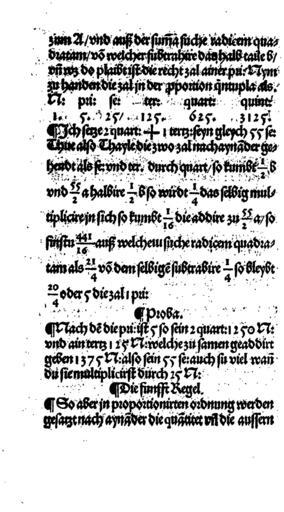 zum A/ vnd auß der summa suche radicem qua-
dratam/ võ welcher subtrahire das halb taile b/
vñ wz do plaibt ist die recht zal ainer pri: Nym
zu handen die zal in der pportion quintupla als.
N: pri: se: ter: quart: quint:
1. 5. 25/ 125. 625. 3125.
¶ Ich setze 2 quart: + 1 terz: seyn gleych 55 se:
Thue also Thayle die zwo zal nachaynäder ge-
hendt als se: vnd ter. durch quart/ so kumbt 1/2 b
vnd 55/2 a halbire 1/2 b so wirdt 1/4 das selbig mul-
tiplicire in sich so kumbt 1/16 die addire zu 55/2 a/ so
441/16 auß welchem suche radicem quadra-
tam als 21/4 võ dem selbigẽ subtrahire 1/4 so bleybt
20/4 oder 5 die zal 1 pri:
¶ Proba.
¶ Nach dẽ die pri: ist 5 so sein 2 quart: 1250 N:
vnd ain terz: 125 N: welche zu samen geaddirt
geben 1375 N: also sein 55 se: auch su viel wañ
du sie multiplicirst durch 25 N:
¶ Die funfft Regel.
¶ So aber in proportionirten ordnung werden
gesatzt nach aynäder die quãtitet vñ die aussern